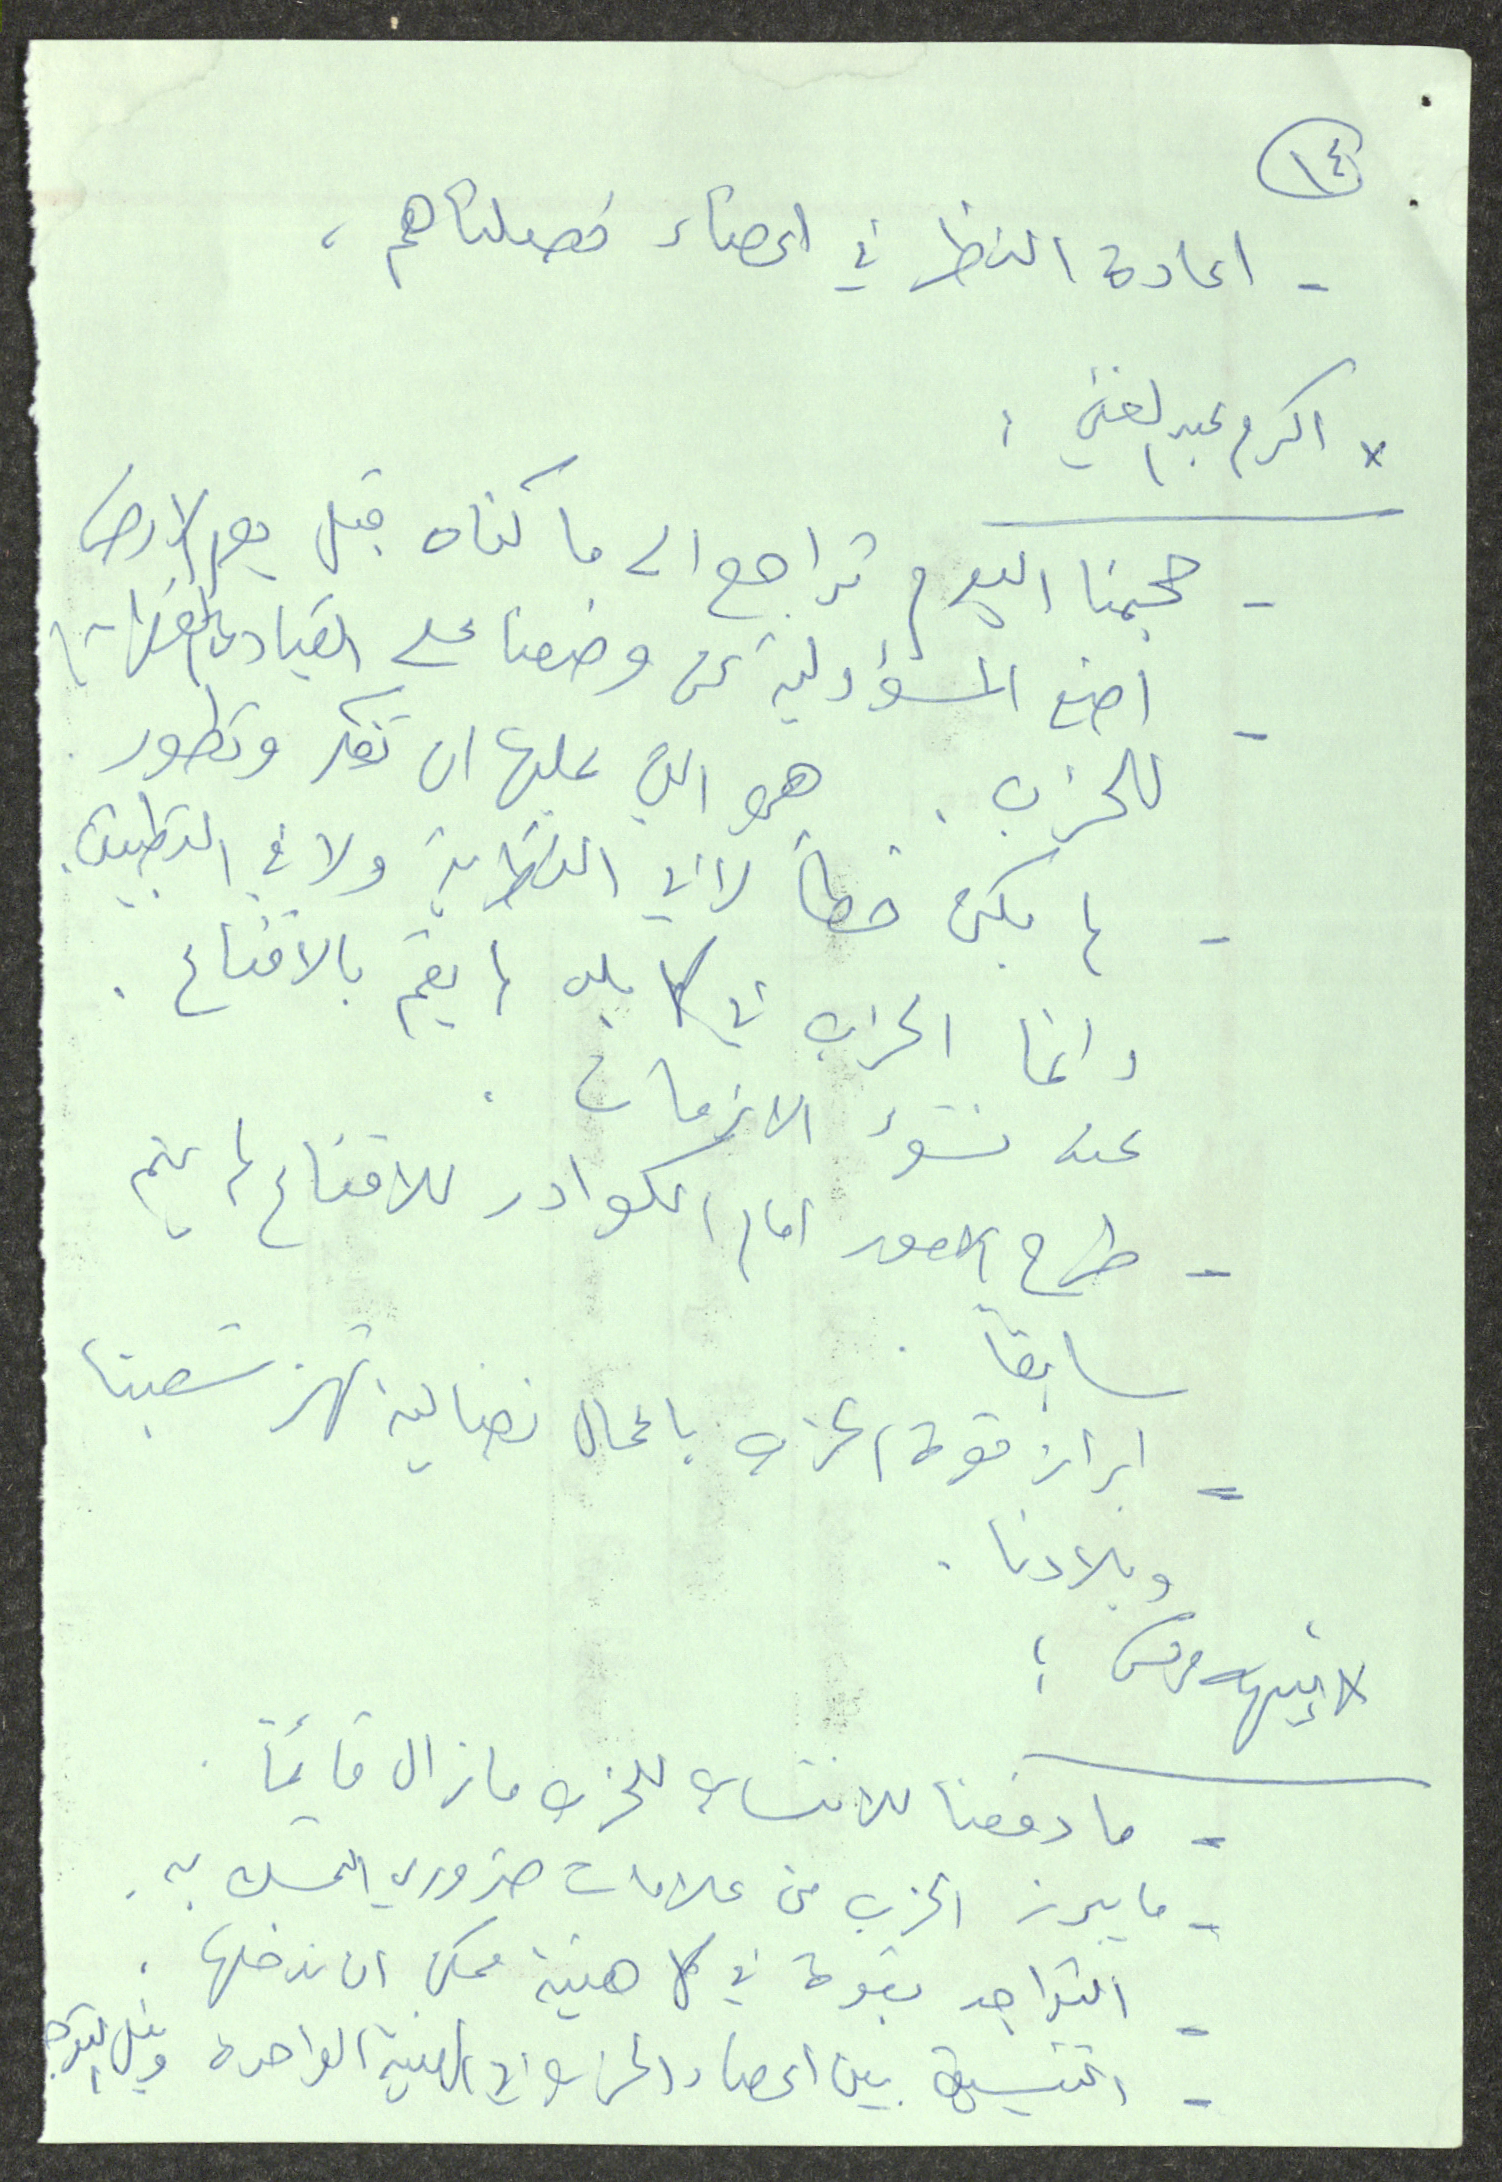 ١٤
- اعادة النظر في اعضاء فصلناهم ،
× اكرم عبد الغني :
- حجمنا اليوم تراجع الى ما كناه قبل يوم الارض
- اضع المسؤولية عن وضعنا على القيادة
للحزب . هو الذي عليها ان تفكر وتطور .
- لم يكن خطأ لا في النظرية ولا في التطبيق .
وانما الحزب في كل بلد لم يقم بالاقناع .
عند نشوء الازمات .
- طرح الامور امام الكوادر للاقناع لم يتم
سابقاً .
- ابراز قوة الحزب باعمال نضالية تهز شعبنا
وبلادنا .
× نبيه مرقس :
- ما دفعنا للانتساب للحزب ما زال قائماً .
- ما يبرز الحزب من علامات ضروري التمسك به .
- التواجد بقوة في كل هيئة ممكن ان ندخلها .
- التنسيق بين اعضاء الحزب في الهيئة الواحدة